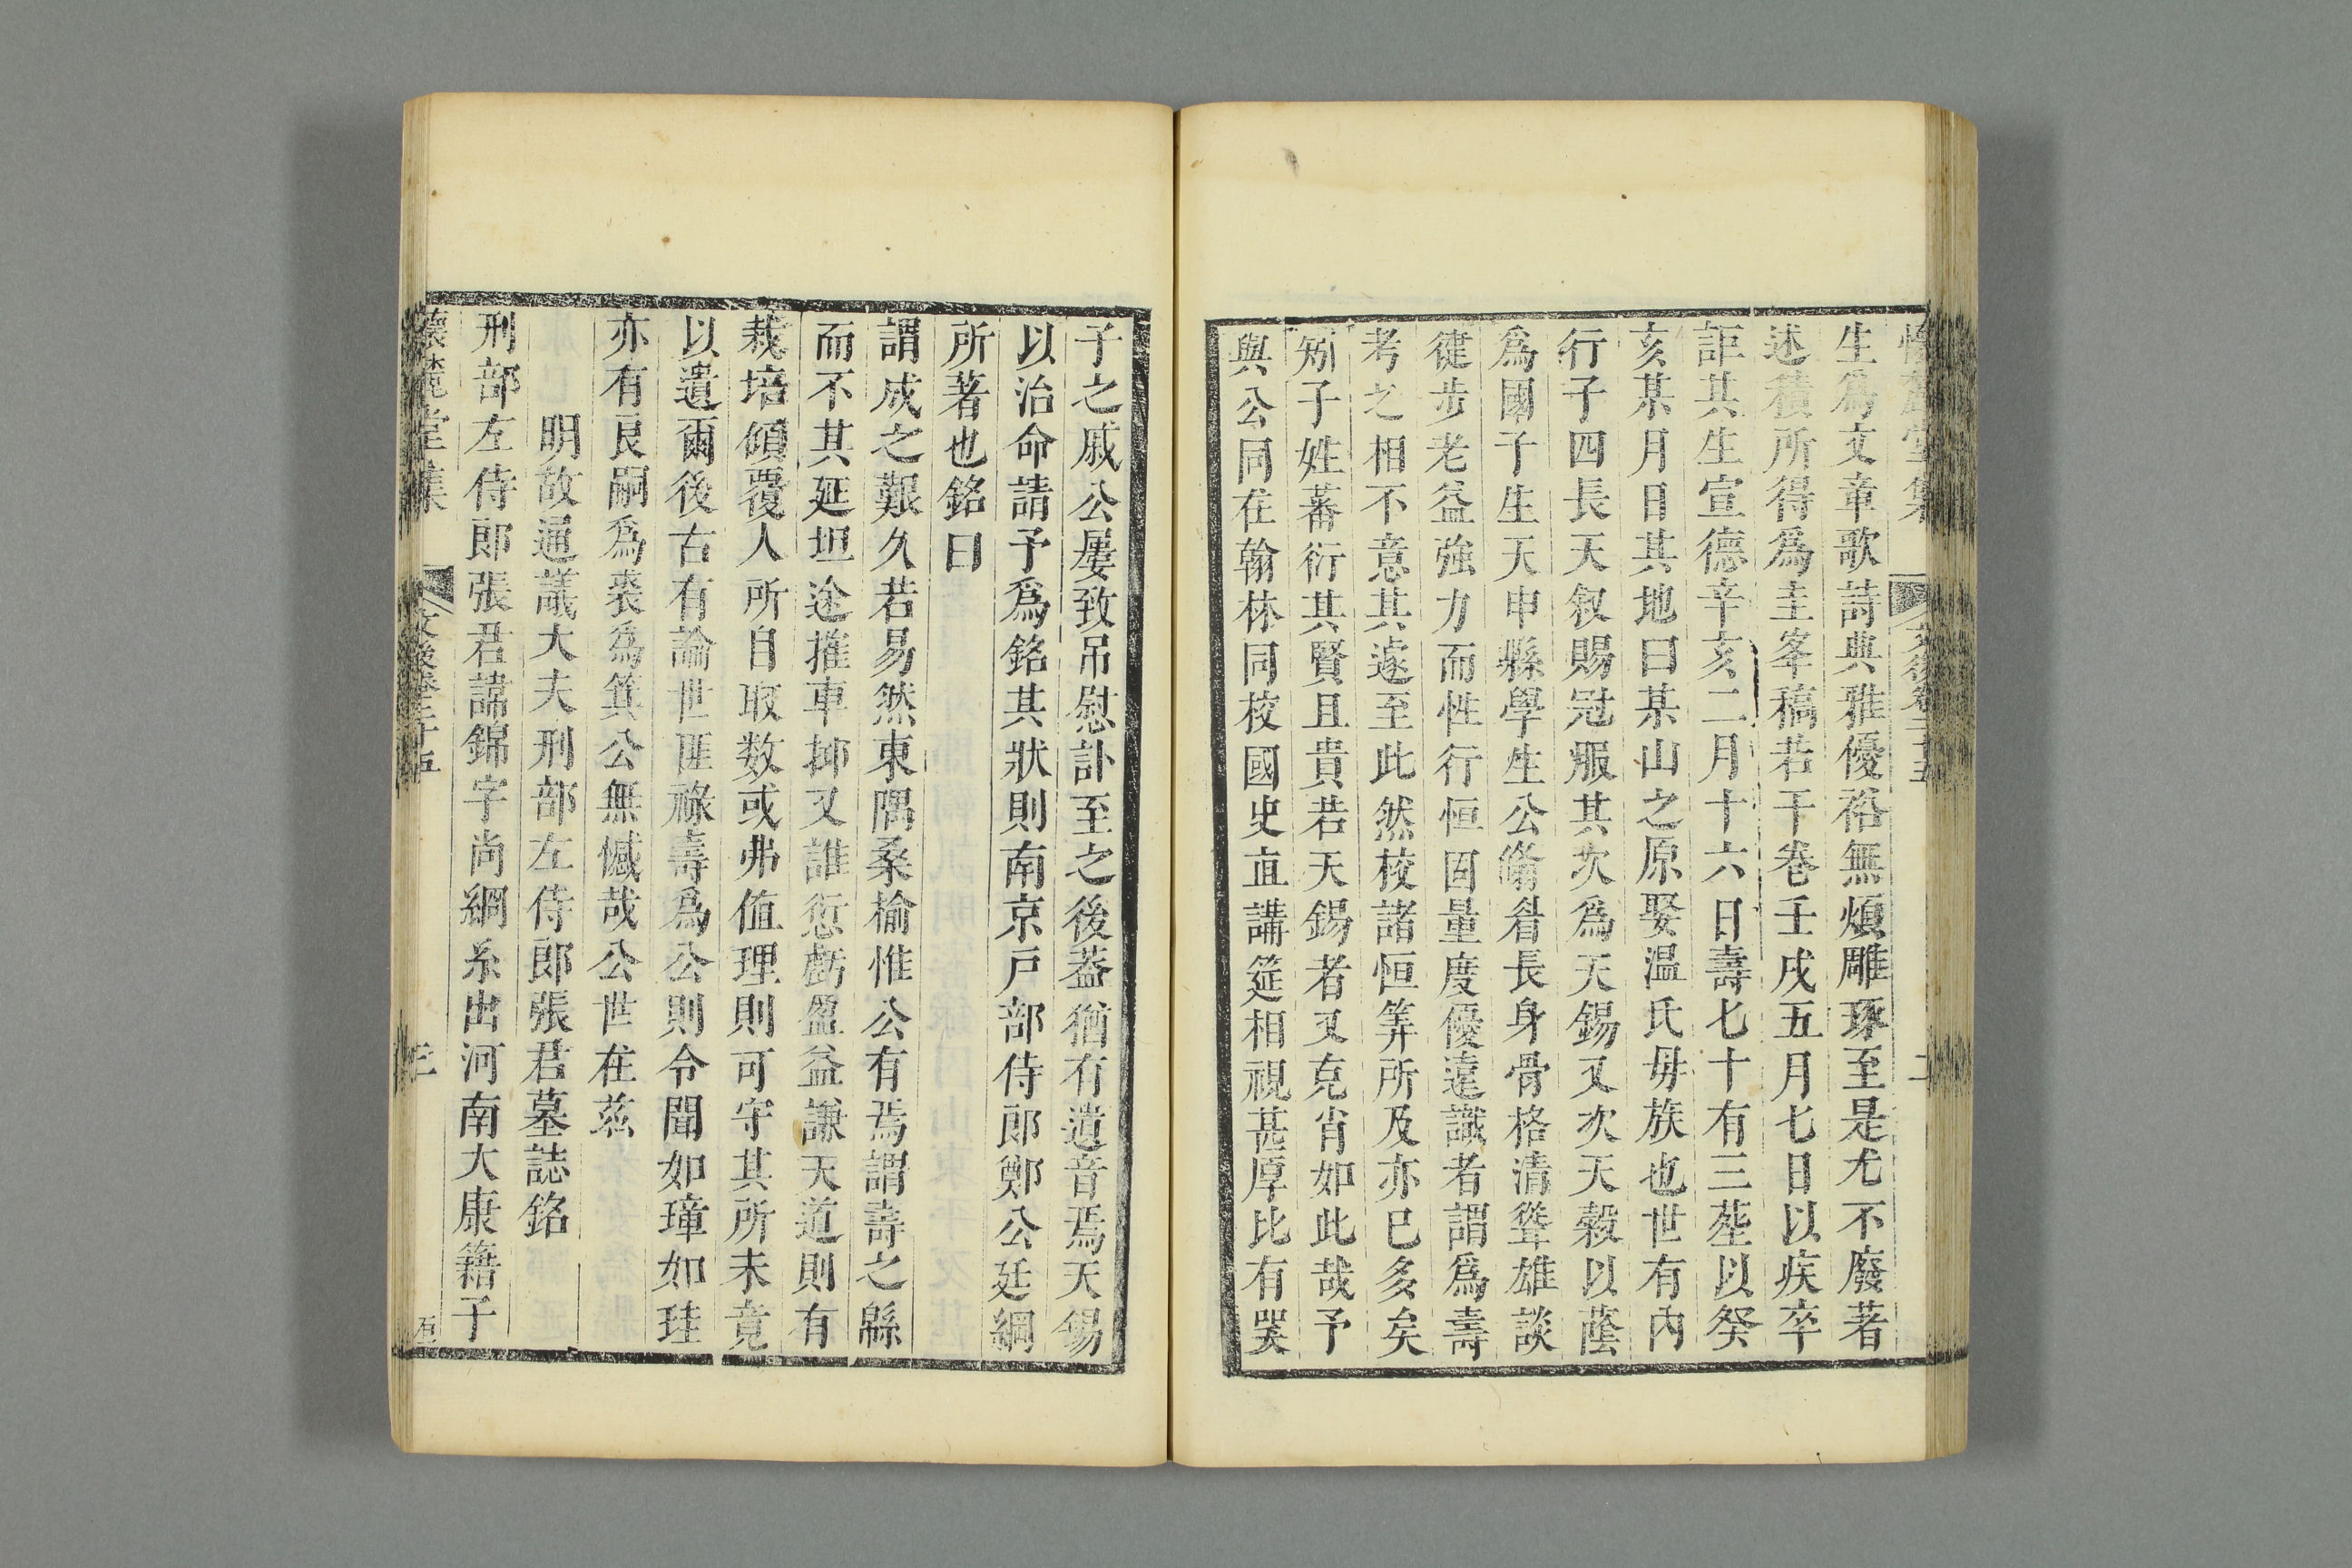 懷麓堂集 文後卷二十五 二
生爲文章歌詩典雅優裕無煩雕琢至是尤不廢著
述積所得爲圭峯稿若干卷壬戌五月七日以疾卒
詎其生宣德辛亥二月十六日壽七十有三塟以癸
亥某月日其地曰某山之原娶温氏毋族也世有內
行子四長天敘賜冠服其次爲天錫又次天榖以蔭
爲國子生天申縣學生公脩眷長身骨格清聳雄談
健步老益強力而性行恒固量度優遠識者謂爲壽
考之相不意其遽至此然校諸恒筭所及亦巳多矣
矧子姓蕃衍其賢且貴若天錫者又克肖如此哉予
與公同在翰林同校國史直講筵相視甚厚比有哭
子之戚公屢致吊慰訃至之後葢猶有遺音焉天錫
以治命請予爲銘其狀則南京戶部侍郎鄭公廷綱
所著也銘曰
謂成之艱久若易然東隅桑榆惟公有焉謂壽之緜
而不其延坦途摧車抑又誰愆虧盈益謙天道則有
栽培傾覆人所自取数或弗値理則可守其所未竟
以遺爾後古有論世匪祿壽爲公則令聞如璋如珪
亦有良嗣爲裘爲箕公無憾哉公世在茲
明故通議大夫刑部左侍郎張君墓誌銘
刑部左侍郎張君諱錦字尚綱系出河南大康籍于
懷麓堂集 文後卷二十五 三